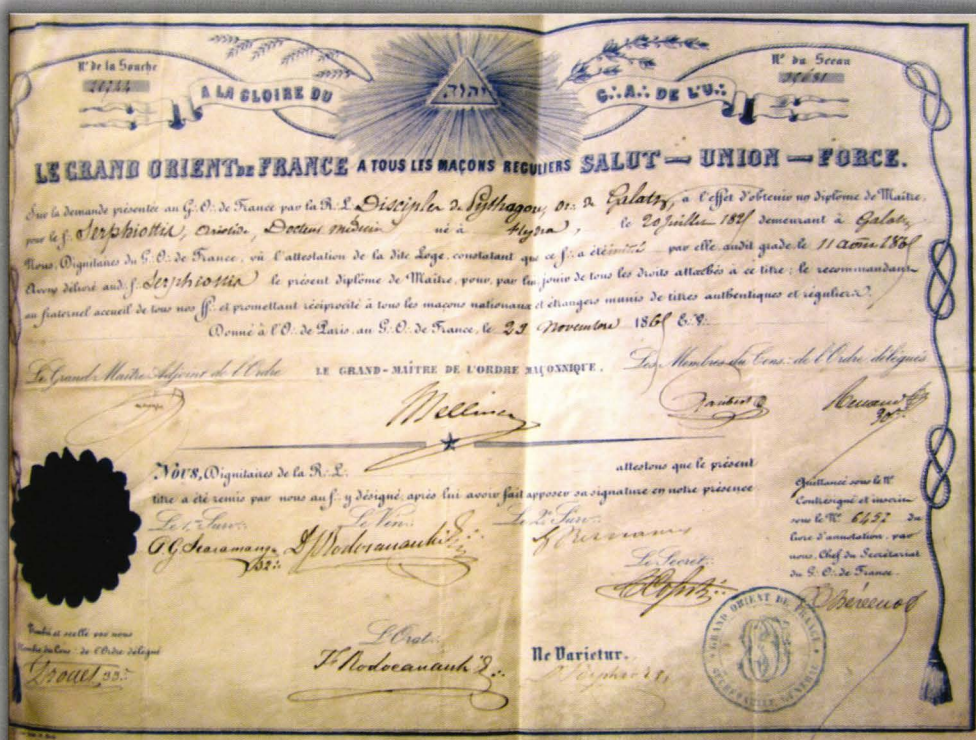 N.º de la Souche
N.º du Sceau
A LA GLOIRE DU
יהוה
G∴A∴ DE L'U∴
LE GRAND ORIENT DE FRANCE A TOUS LES MAÇONS REGULIERS SALUT — UNION — FORCE.
Sur la demande présentée au G∴O∴ de France par la R∴L∴ Disciples de Pythagore, Or∴ de Galatz, à l'effet d'obtenir un diplôme de Maître,
pour le f∴ Serphiottis, Aristide, Docteur médecin né à Hydra, le 20 Juillet demeurant à Galatz,
Nous, Dignitaires du G∴O∴ de France, vû l'attestation de la dite Loge, constatant que ce f∴ a été initié par elle audit grade le 11 août
Avons délivré au d∴ f∴ Serphiottis le présent diplôme de Maître, pour, par lui, jouir de tous les droits attachés à ce titre; le recommandant
au fraternel accueil de tous nos ff∴ et promettant réciprocité à tous les maçons nationaux et étrangers munis de titres authentiques et réguliers.
Donné à l'O∴ de Paris, au G∴O∴ de France, le 29 Novembre E∴V∴
Le Grand-Maître Adjoint de l'Ordre
LE GRAND-MAÎTRE DE L'ORDRE MAÇONNIQUE.
Les Membres du Cons∴ de l'Ordre délégués
Mellinet
NOUS, Dignitaires de la R∴L∴ attestons que le présent
titre a été remis par nous au f∴ y désigné, après lui avoir fait apposer sa signature en notre présence
Le 1.er Surv∴ Le Vén∴ Le 2.e Surv∴
Rodocanachi
Le Secret∴
Quittancé sous le N.º
Contresigné et inscrit
sous le N.º 6457 du
livre d'annotation, par
nous, Chef du Secrétariat
du G∴O∴ de France.
Timbré et scellé par nous
Membre du Cons∴ de l'Ordre délégué
L'Orat∴
Rodocanachi
Ne Varietur.
GRAND ORIENT DE FRANCE
SECRÉTARIAT GÉNÉRAL